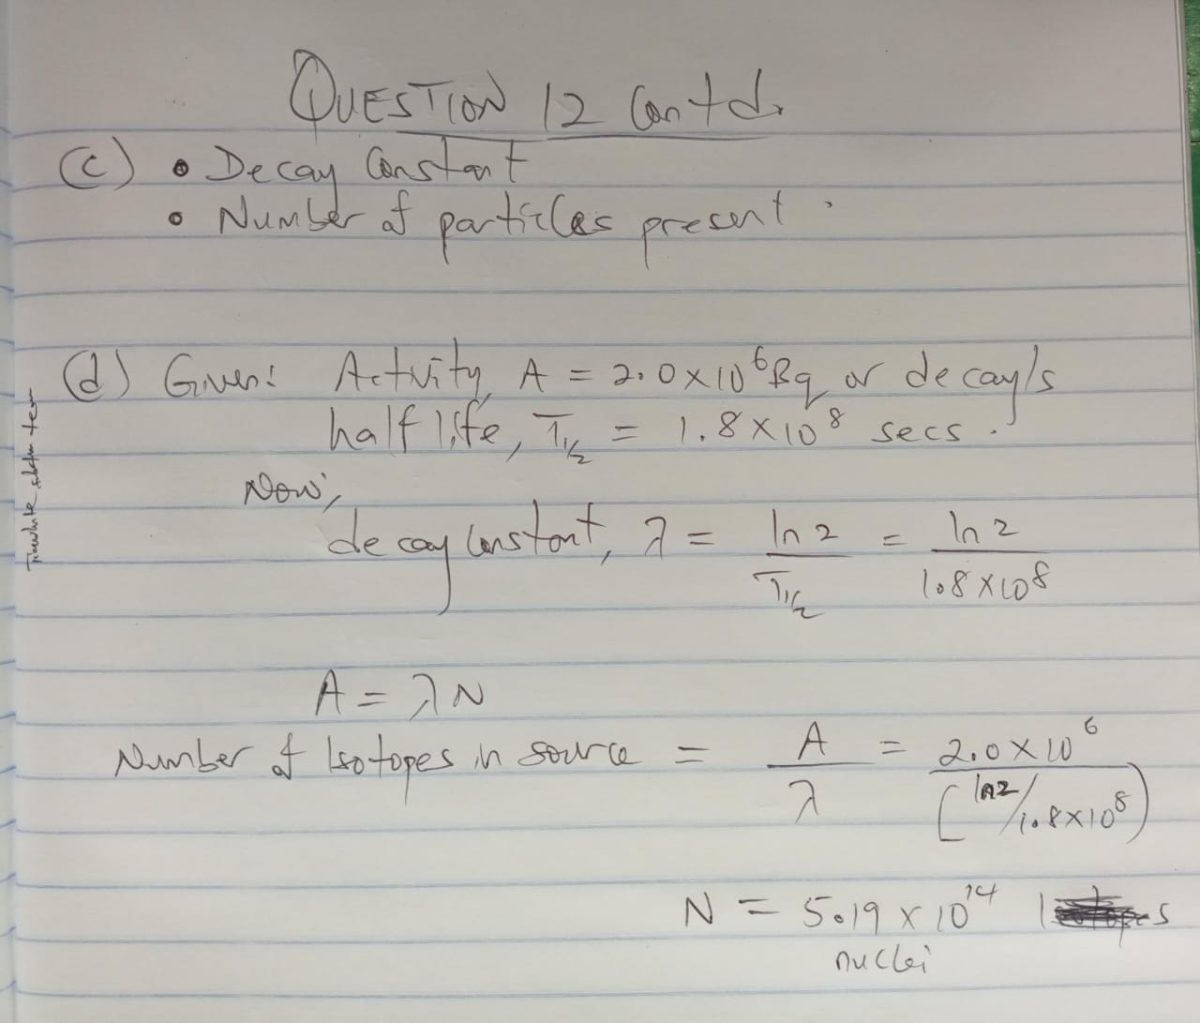 QUESTION 12 Contd.
(c) • Decay Constant
• Number of particles present.
(d) Given: Activity, A = 2.0×10⁶Bq or decay/s
half life, T½ = 1.8×10⁸ secs.
Now,
decay constant, λ = ln 2 / T½ = ln 2 / 1.8×10⁸
A = λN
Number of Isotopes in source = A / λ = 2.0×10⁶ / [ln2/1.8×10⁸)
N = 5.19×10¹⁴
nuclei